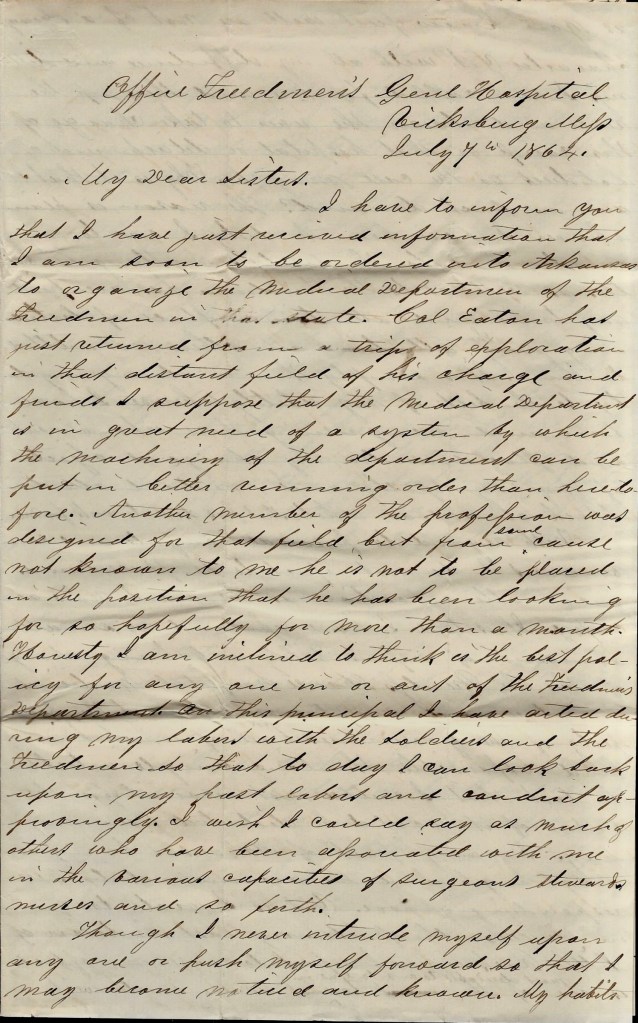 Office Freedmen's Genl Hospital
Vicksburg Miss
July 7th 1864.
My Dear Sisters.
I have to inform you
that I have just received information that
I am soon to be ordered into Arkansas
to organize the Medical Departmen of the
Freedmen in that state. Col Eaton has
just returned from a trip of exploration
in that distant field of his charge and
finds I suppose that the Medical Department
is in great need of a system by which
the machinery of the department can be
put in better running order than hereto-
fore. Another member of the profession was
designed for that field but from some cause
not known to me he is not to be placed
in the position that he has been looking
for so hopefully for more than a month.
Honesty I am inclined to think is the best pol-
icy for any one in or out of the Freedmen's
Department. On this principal I have acted du-
ring my labors with the soldiers and the
Freedmen so that to day I can look back
upon my past labors and conduct ap-
provingly. I wish I could say as much of
others who have been associated with me
in the various capacities of surgeons stewards
nurses and so forth.
Though I never intrude myself upon
any one or push myself forward so that I
may become noticed and known. My habits